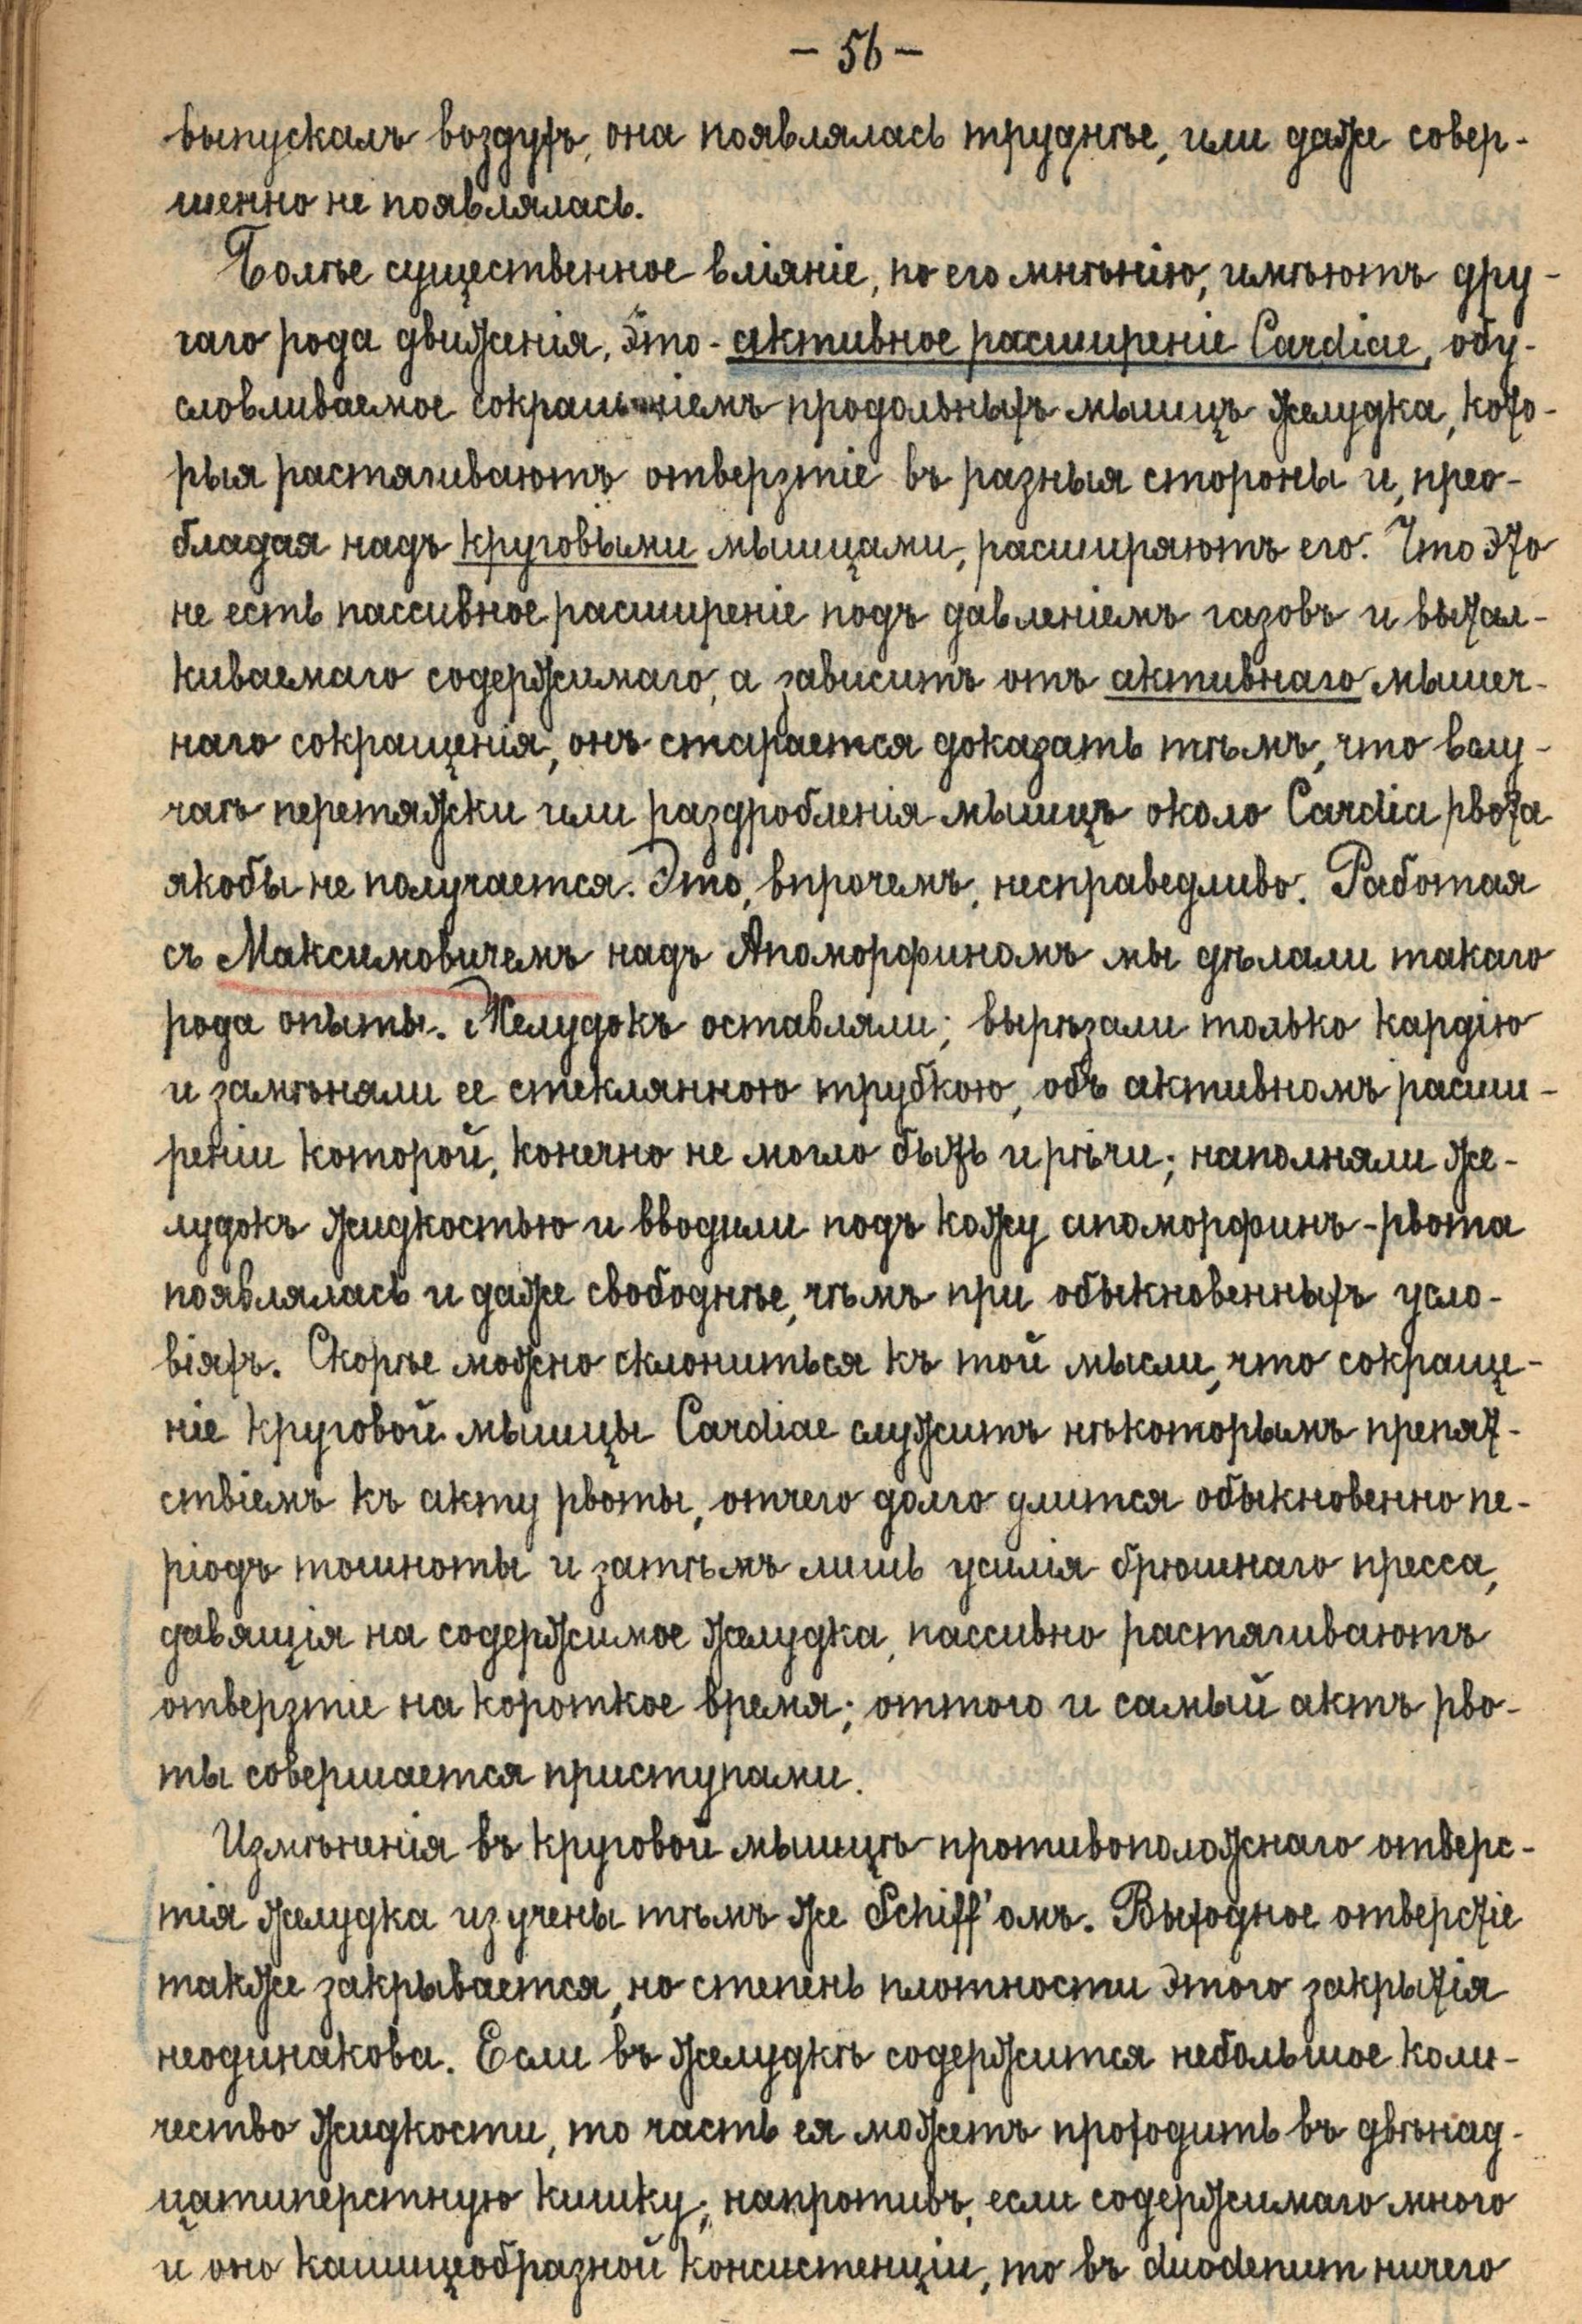 - 56 -
выпускалъ воздухъ, она появлялась труднѣе, или даже совер-
шенно не появлялась.
Болѣе существенное вліяніе, по его мнѣнію, имѣютъ дру-
гаго рода движенія. Это - активное расширеніе Cardiae, обу-
словливаемое сокращеніемъ продольныхъ мышцъ желудка, кото-
рыя растягиваютъ отверзтіе въ разныя стороны и, прео-
бладая надъ круговыми мышцами, расширяютъ его. Что это
не есть пассивное расширеніе подъ давленіемъ газовъ и вытал-
киваемаго содержимаго, а зависитъ отъ активнаго мышеч-
наго сокращенія, онъ старается доказать тѣмъ, что въ слу-
чаѣ перетяжки или раздробленія мышцъ около Cardia рвота
якобы не получается. Это, впрочемъ, несправедливо. Работая
съ Максимовичемъ надъ Апоморфиномъ мы дѣлали такаго
рода опыты. Желудокъ оставляли; вырѣзали только кардію
и замѣняли ее стеклянною трубкою, объ активномъ расши-
реніи которой, конечно не могло быть и рѣчи; наполняли же-
лудокъ жидкостью и вводили подъ кожу апоморфинъ - рвота
появлялась и даже свободнѣе, чѣмъ при обыкновенныхъ усло-
віяхъ. Скорѣе можно склониться къ той мысли, что сокраще-
ніе круговой мышцы Cardiae служитъ нѣкоторымъ препят-
ствіемъ къ акту рвоты, отчего долго длится обыкновенно пе-
ріодъ тошноты и затѣмъ лишь усилія брюшнаго пресса,
давящія на содержимое желудка, пассивно растягиваютъ
отверзтіе на короткое время; оттого и самый актъ рво-
ты совершается приступами.
Измѣненія въ круговой мышцѣ противоположнаго отверс-
тія желудка изучены тѣмъ же Schiff'омъ. Выходное отверстіе
также закрывается, но степень плотности этого закрытія
неодинакова. Если въ желудкѣ содержится небольшое коли-
чество жидкости, то часть ея можетъ проходить въ двѣнад-
цатиперстную кишку; напротивъ, если содержимаго много
и оно кашицеобразной консистенціи, то въ duodenum ничего